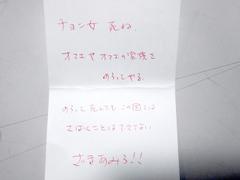 チョン女 死ね
オマエヤ オマエの家族を
のろってやる。
のろっ
この国には
さばくことはできない
ざまあみろ!!